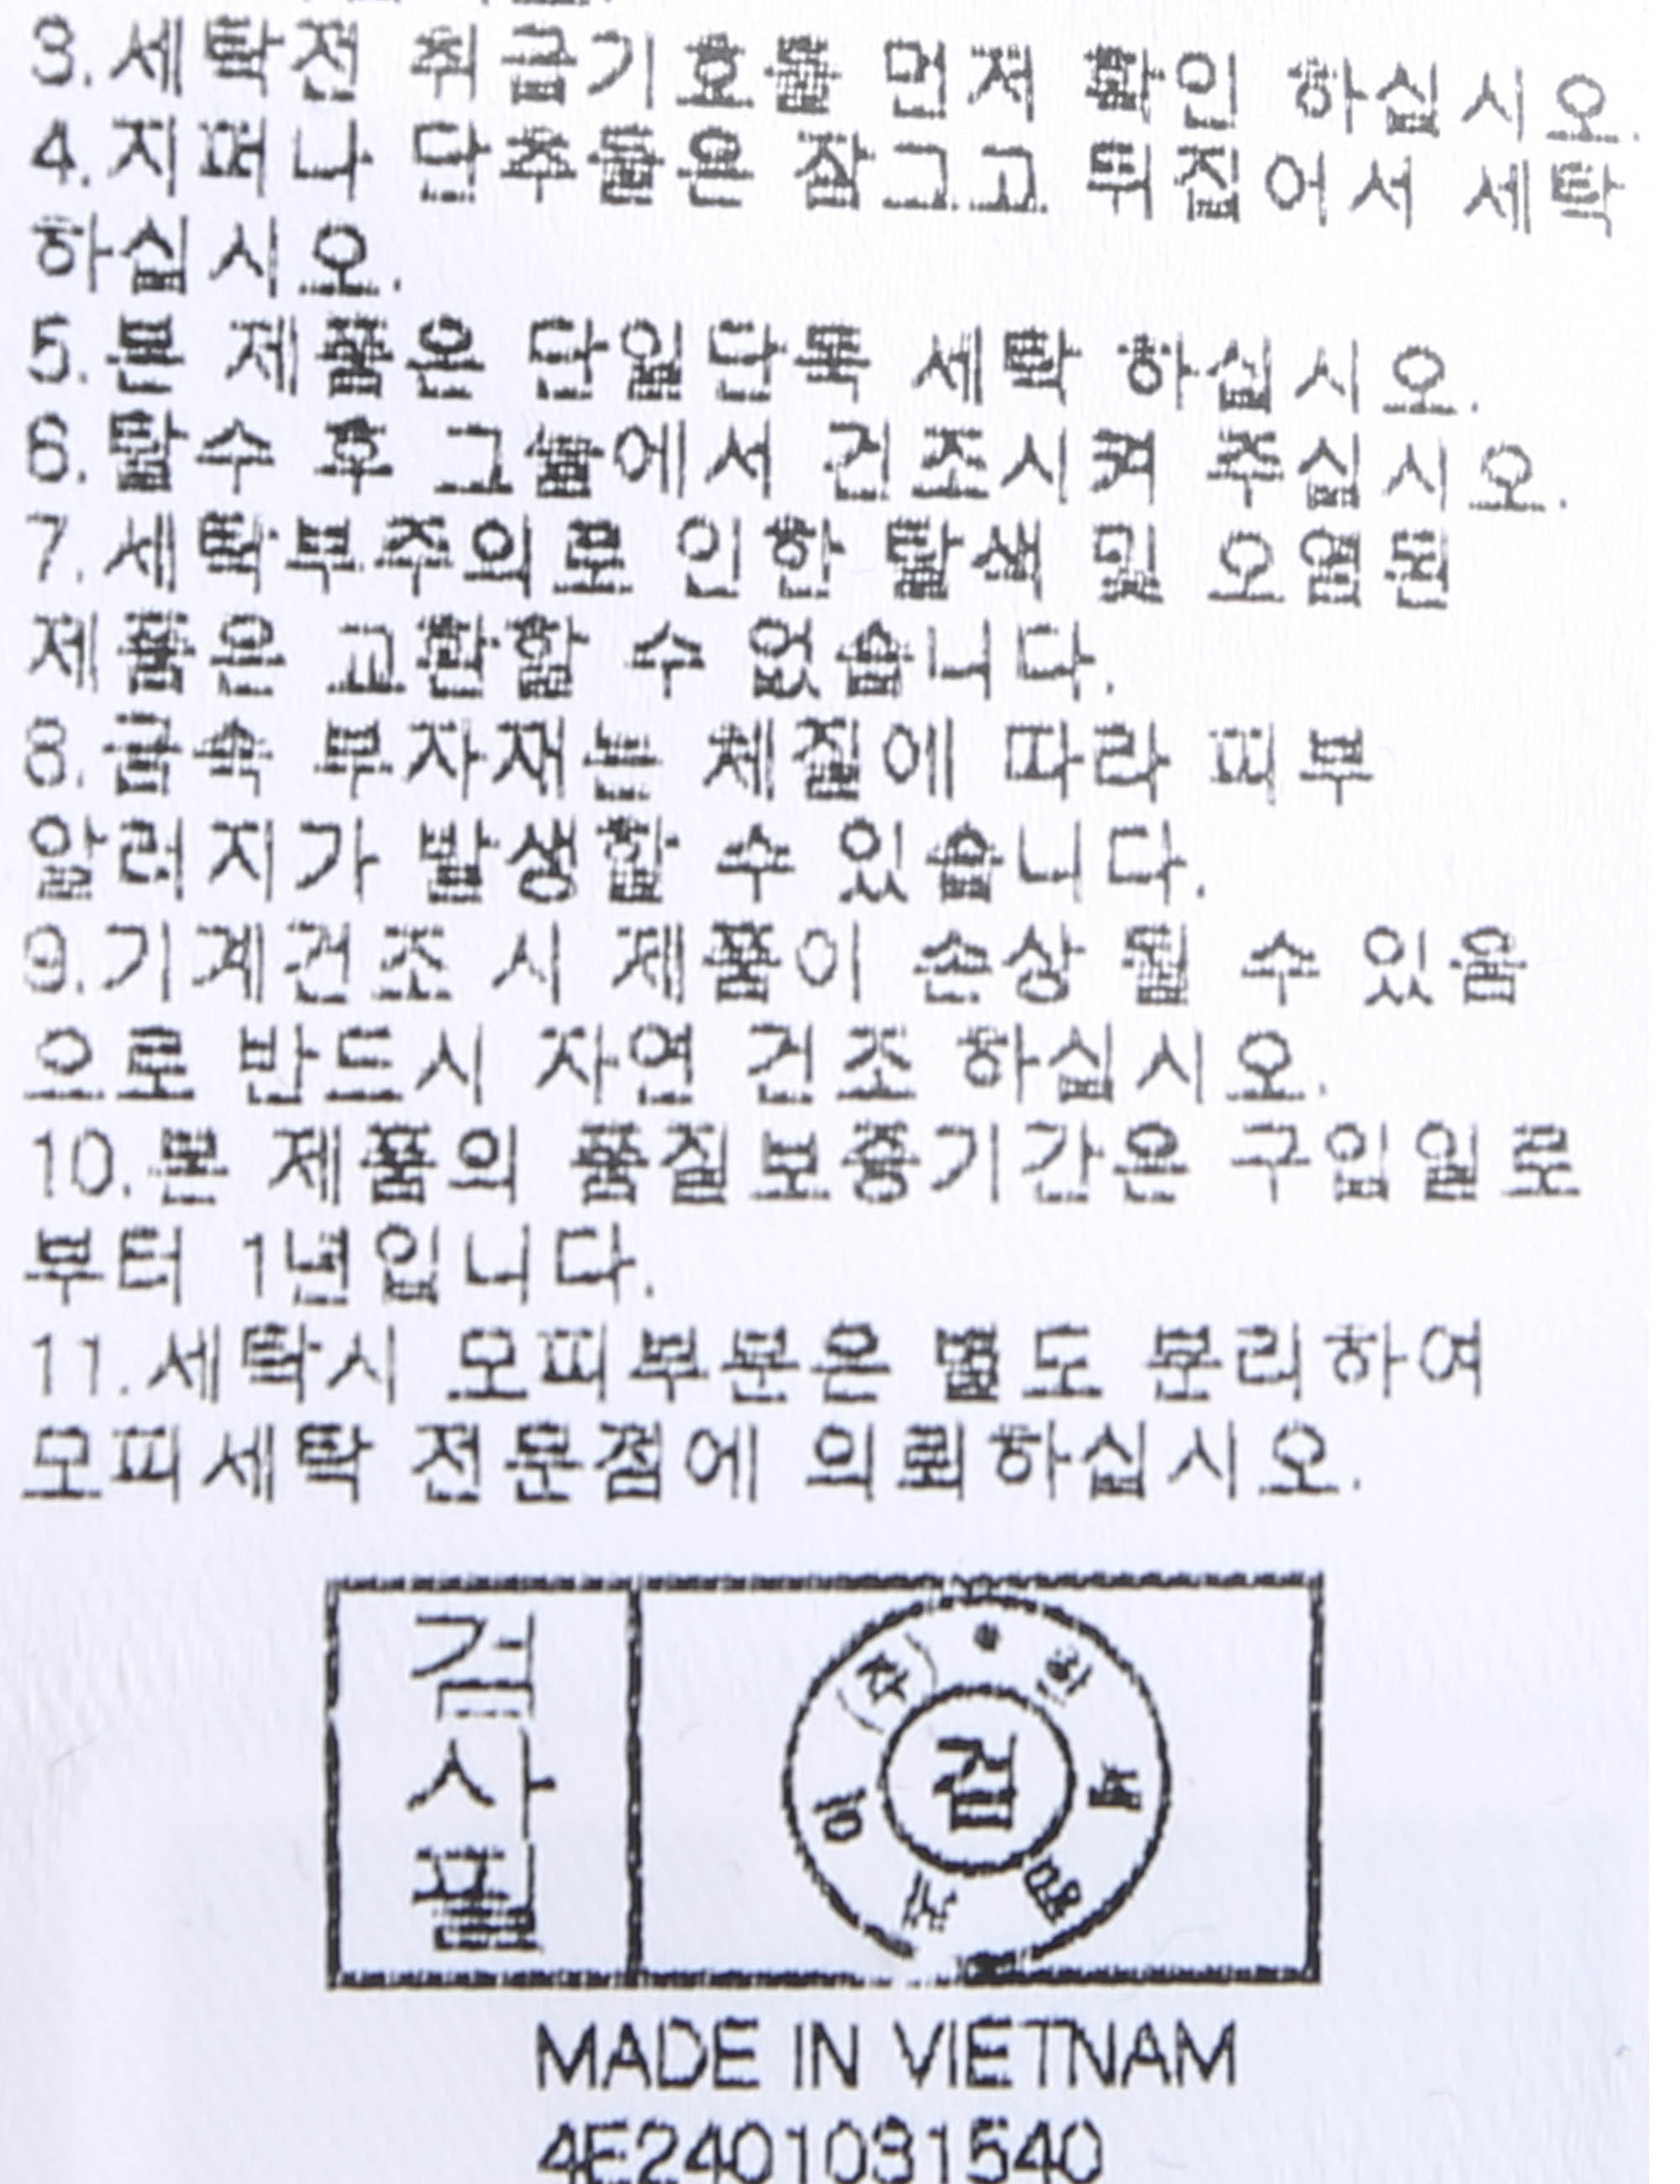 3.세탁전 취급기호를 먼저 확인 하십시오.
4.지퍼나 단추들은 잠그고 뒤집어서 세탁
하십시오.
5.본 제품은 단일단독 세탁 하십시오.
6.탈수 후 그늘에서 건조시켜 주십시오.
7.세탁부주의로 인한 탈색 및 오염된
제품은 교환할 수 없습니다.
8.금속 부자재는 체질에 따라 피부
알러지가 발생할 수 있습니다.
9.기계건조 시 제품이 손상 될 수 있음
으로 반드시 자연 건조 하십시오.
10.본 제품의 품질보증기간은 구입일로
부터 1년입니다.
11.세탁시 모피부분은 별도 분리하여
모피세탁 전문점에 의뢰하십시오.
검사필
검
MADE IN VIETNAM
4E2401031540